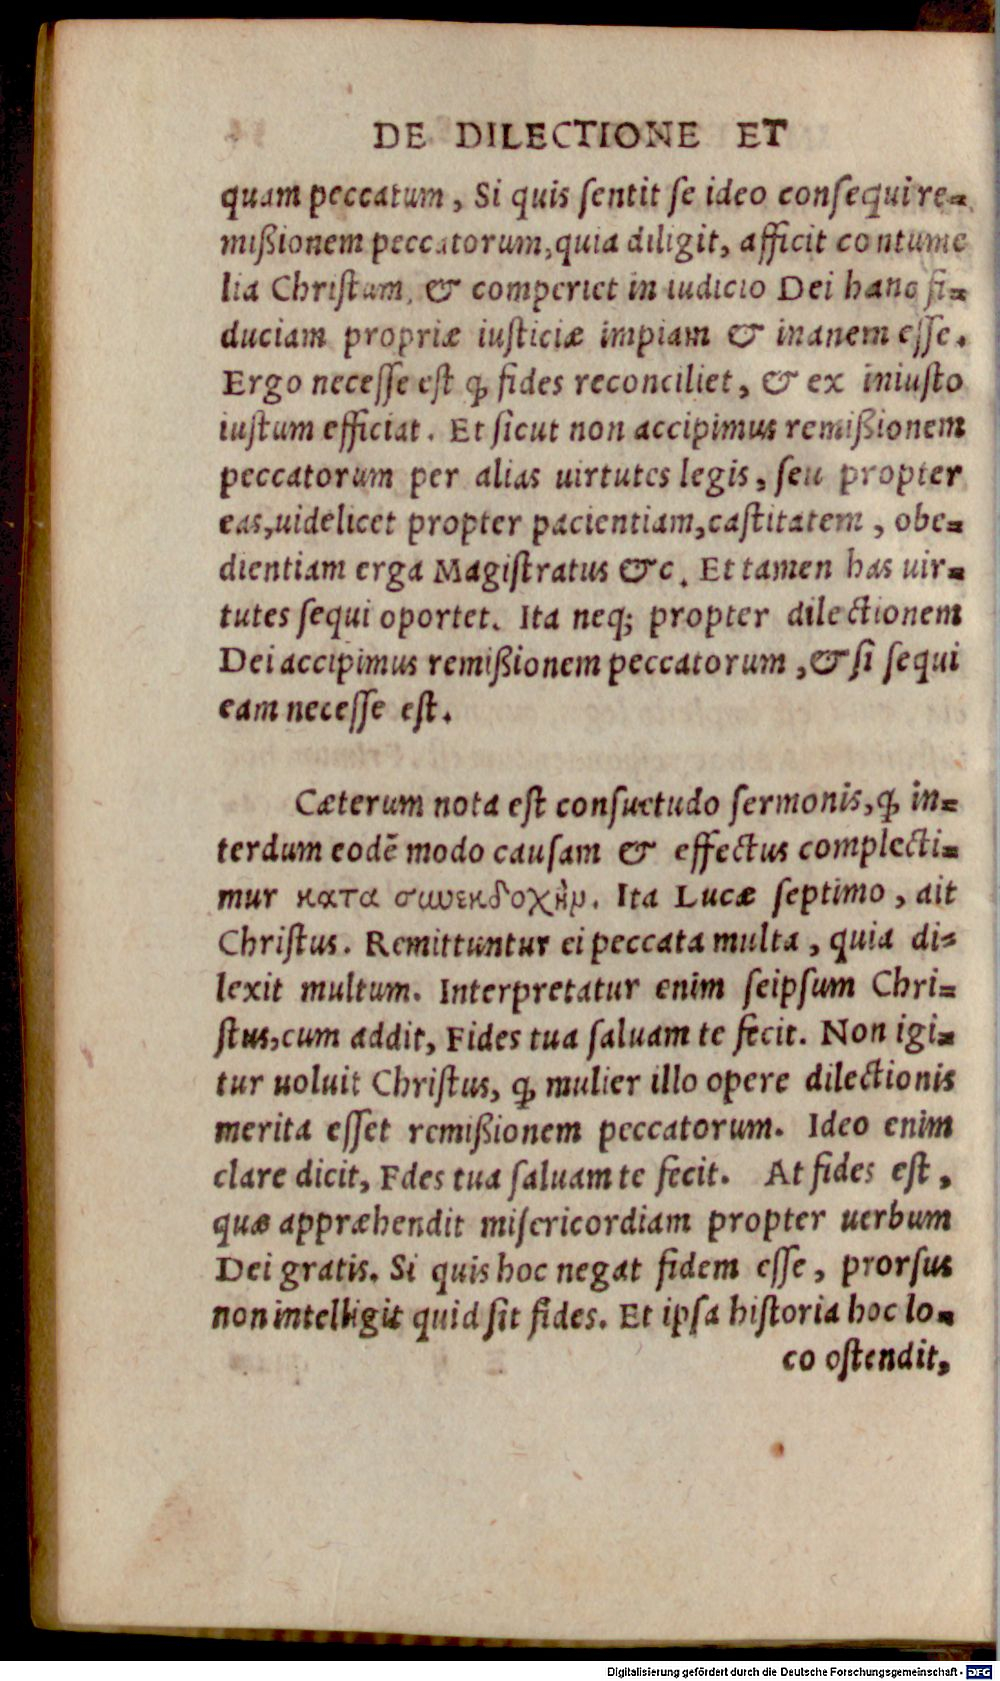 DE DILECTIONE ET
quam peccatum, Si quis ſentit ſe ideo conſequi re-
mißionem peccatorum, quia diligit, afficit contume
lia Chriſtum, & comperiet in iudicio Dei hanc fi-
duciam propriæ iuſticiæ impiam & inanem eſſe.
Ergo neceſſe eſt ꝙ fides reconciliet, & ex iniuſto
iuſtum efficiat. Et ſicut non accipimus remißionem
peccatorum per alias uirtutes legis, ſeu propter
eas, uidelicet propter pacientiam, caſtitatem, obe-
dientiam erga Magiſtratus &c. Et tamen has uir-
tutes ſequi oportet. Ita neq; propter dilectionem
Dei accipimus remißionem peccatorum, & ſi ſequi
eam neceſſe eſt.
Cæterum nota eſt conſuetudo ſermonis, ꝙ in-
terdum eodē modo cauſam & effectus complecti-
mur κατα συνεκδοχὴν. Ita Lucæ ſeptimo, ait
Chriſtus. Remittuntur ei peccata multa, quia di-
lexit multum. Interpretatur enim ſeipſum Chri-
ſtus, cum addit, Fides tua ſaluam te fecit. Non igi-
tur uoluit Chriſtus, ꝙ mulier illo opere dilectionis
merita eſſet remißionem peccatorum. Ideo enim
clare dicit, Fdes tua ſaluam te fecit. At fides eſt,
quæ appræhendit miſericordiam propter uerbum
Dei gratis. Si quis hoc negat fidem eſſe, prorſus
non intelligit quid ſit fides. Et ipſa hiſtoria hoc lo-
co oſtendit,
Digitalisierung gefördert durch die Deutsche Forschungsgemeinschaft - DFG